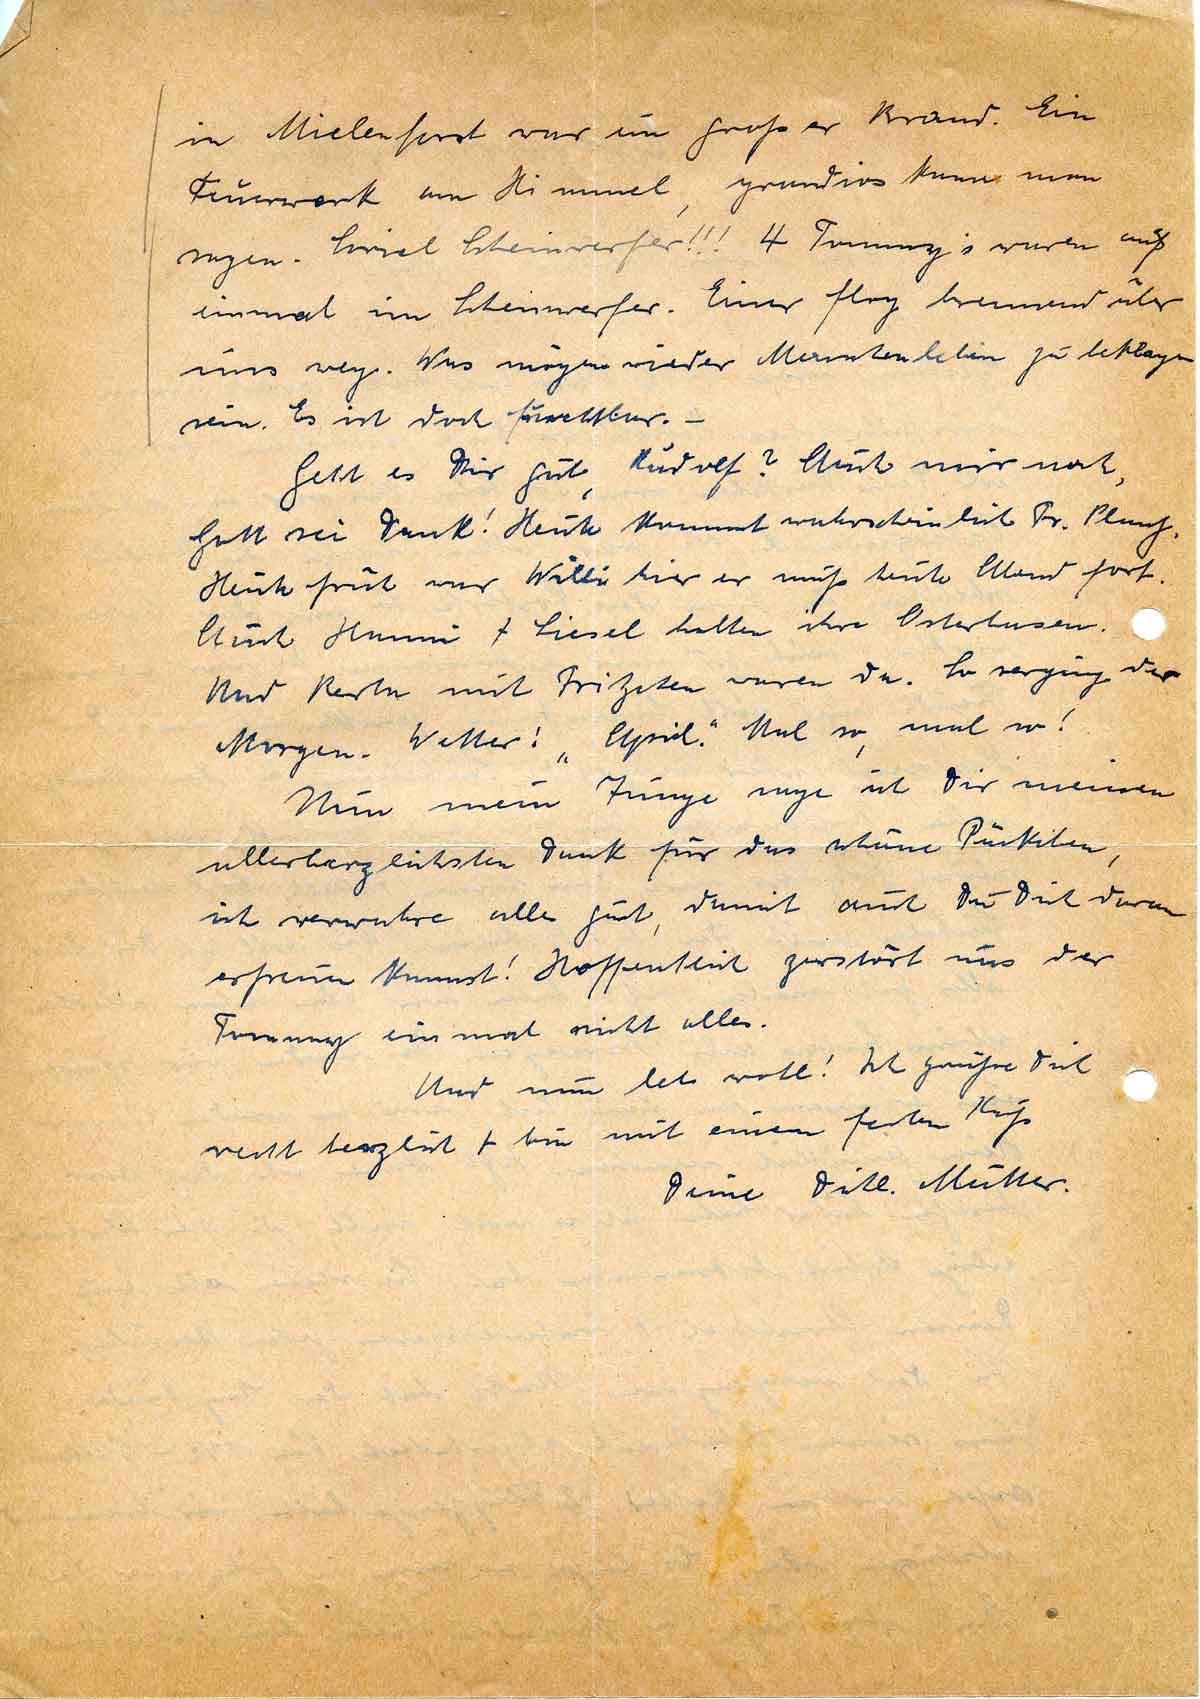 in Mielenforst war ein großer Brand. Ein
Feuerwerk am Himmel, grandios kann man
sagen. Soviel Scheinwerfer!!! 4 Tommy's waren auf
einmal im Scheinwerfer. Einer flog brennend über
uns weg. Was mögen wieder Menschenleben zu beklagen
sein. Es ist doch furchtbar. –
Geht es Dir gut, Rudolf? Auch mir noch,
Gott sei Dank! Heute kommt wahrscheinlich Fr.
Heute früh war Willi hier er muß heute Abend fort.
Auch Hanni + Liesel hatten ihre Osterhasen.
Und Berta mit Fritzchen waren da. So verging der
Morgen. Wetter! „April." Mal so, mal so!
Nun mein Junge sage ich Dir meinen
allerherzlichsten Dank für das schöne Päckchen,
ich verwahre alles gut, damit auch Du Dich daran
erfreuen kannst! Hoffentlich zerstört uns der
Tommy einmal nicht alles.
Und nun leb wohl! Ich grüße Dich
recht herzlich + bin mit einem festen Kuß
Deine Mutter.